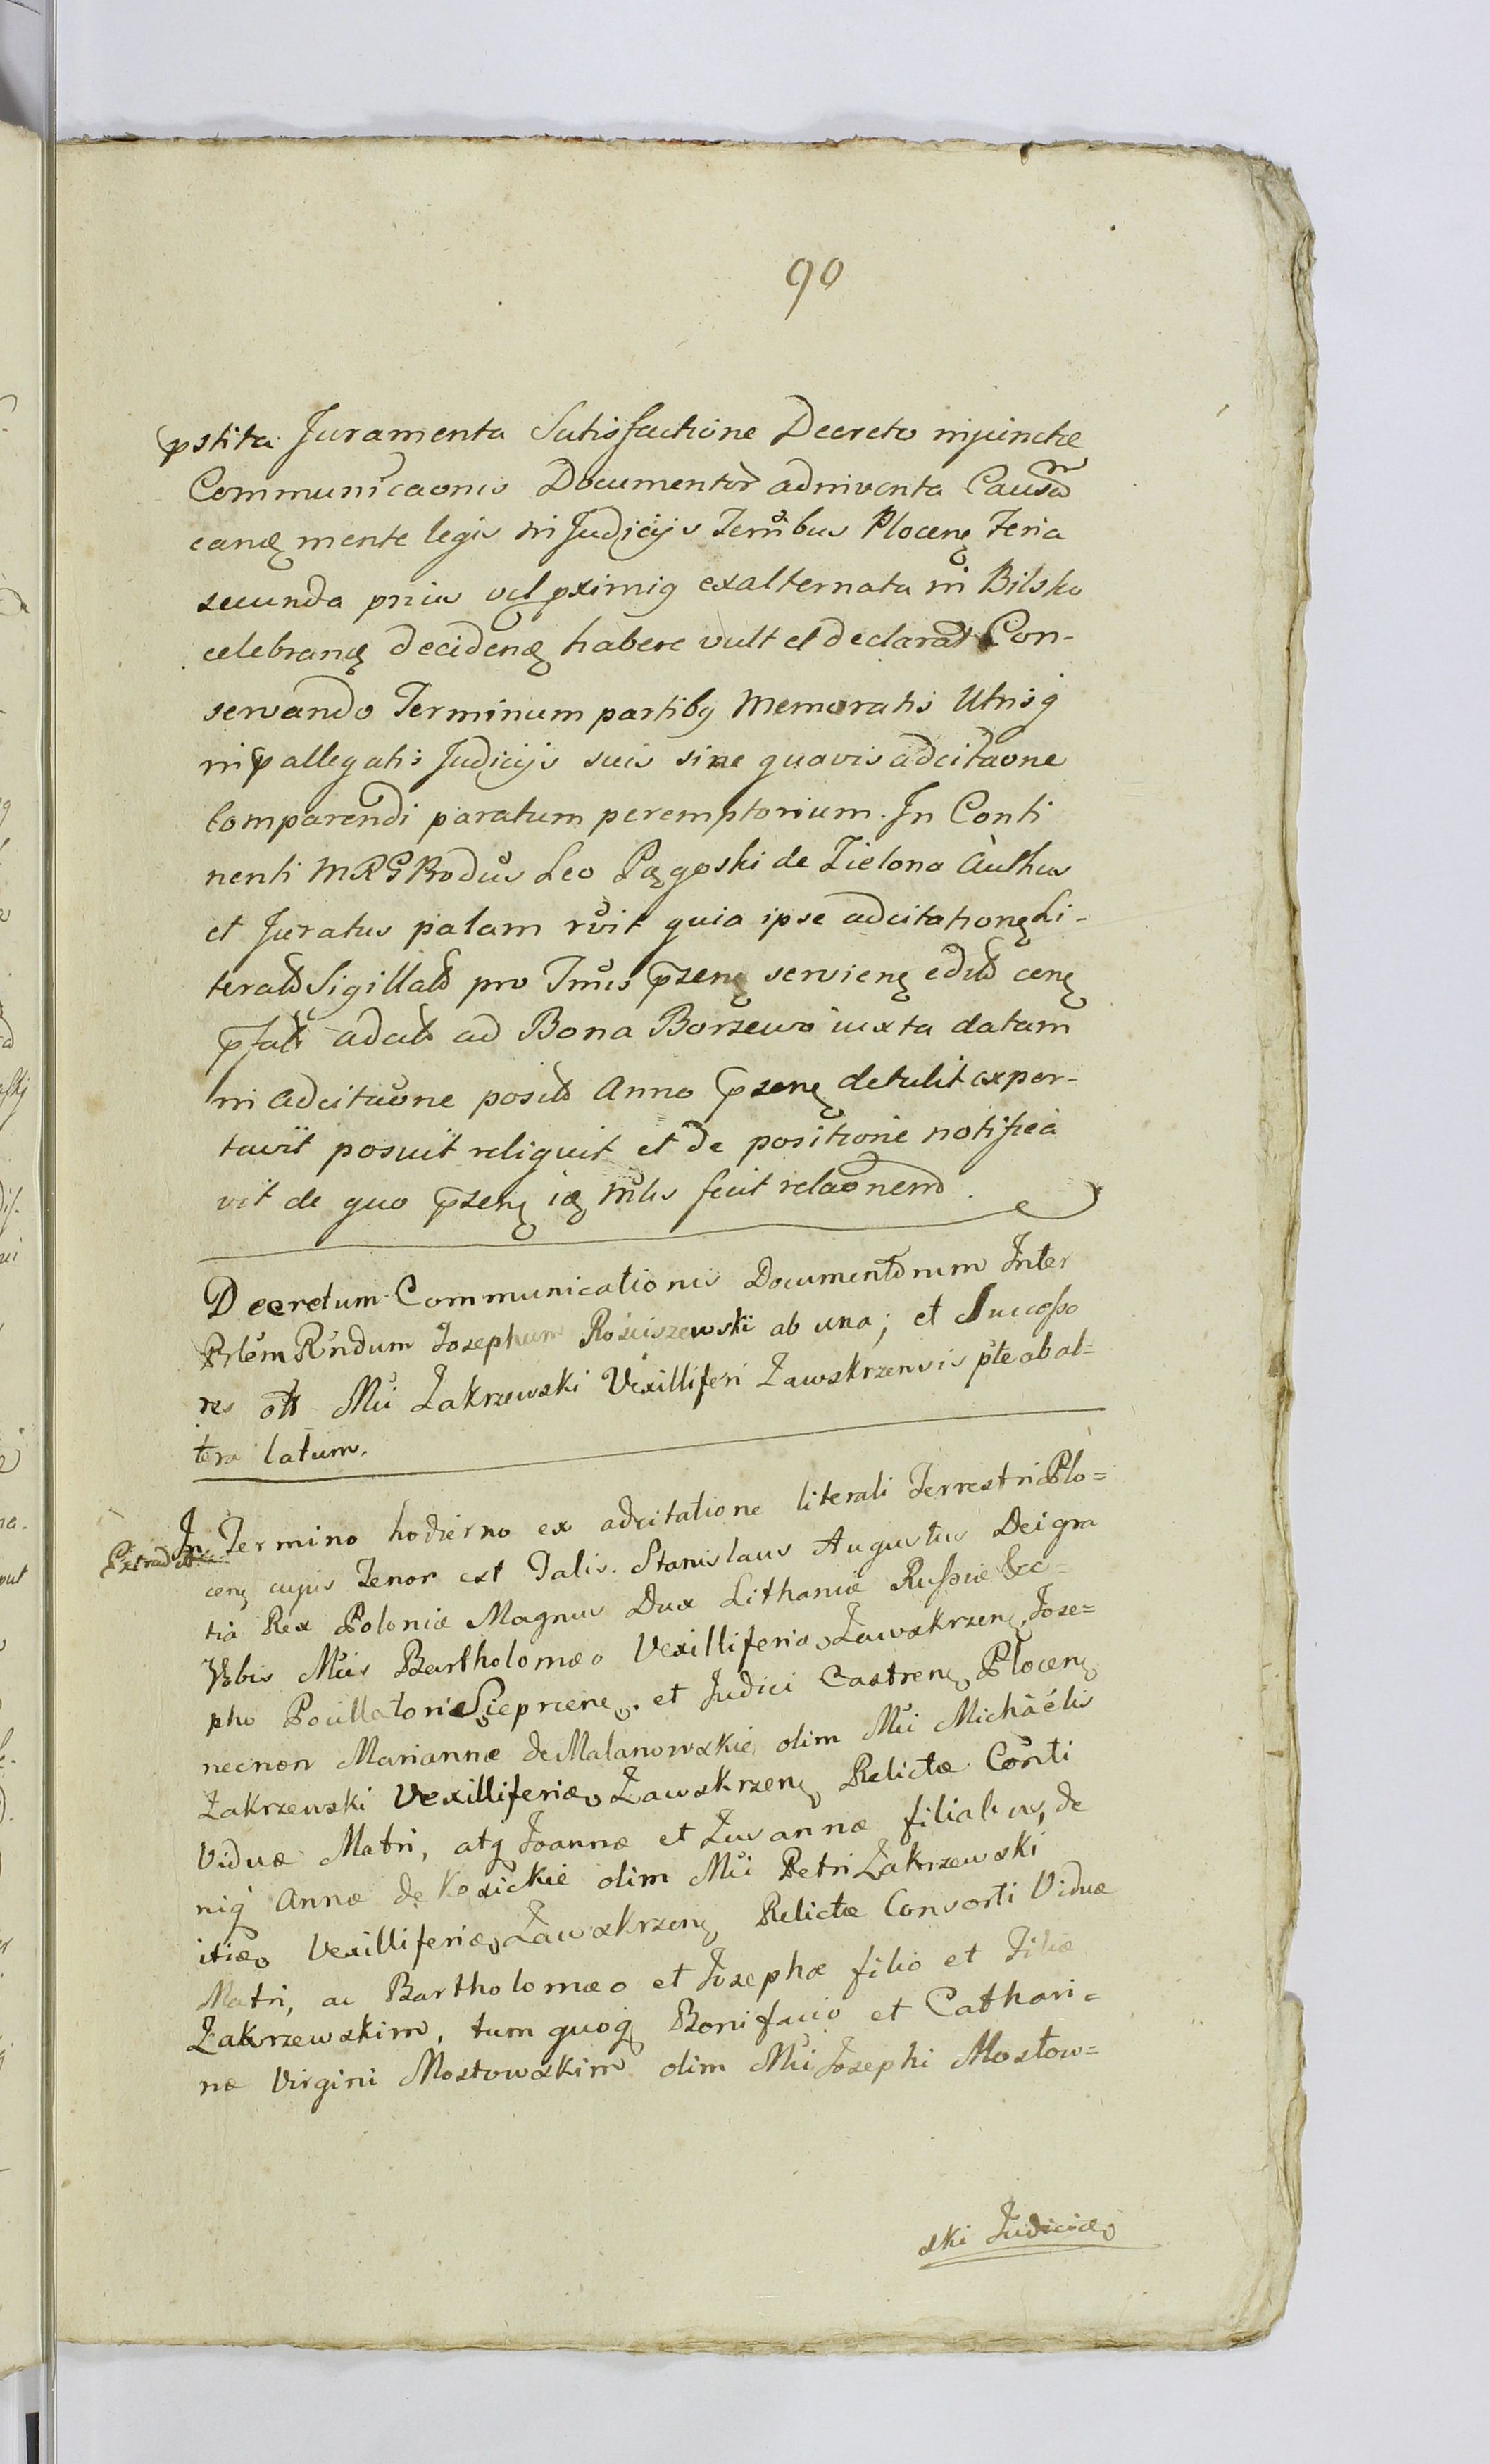 90
pstita Juramenta Satisfactione Decreto injunctæ
Communicaonis Documentor adinventa Causam
eandę mente legis in Judicijs Terribus Plocenę Feria
secunda pria vel pximiq exalternata in Bilsko
celebranę decidenę habere vult et declarat Con-
servando Terminum partibq Memoratis Utrisq
in pallegatis Judicijs suis sine quavis adcitaone
Comparendi paratum peremptorium. In Conti
nenti MRG Rodus Leo Pągoski de Zielona Authus
et Juratus palam rvit quia ipse adcitationę Li-
terald Sigillald pro Tmis pzenę servienę edild cenę
pfatt adcitt ad Bona Borzewo iuxta datam
in adcitaone positt Anno pzenę detulit expor-
tavit posuit reliquit et de positione notifica
vit de quo pzenę ię Mtlis fecit relaonem.
Decretum Communicationis Documentorum Inter
Prlem Rndum Josephum Rościszewski ab una; et Successo
res ott Mci Zakrzewski Vexilliferi Zawskrzensis pte ab al=
tera latum.
Extradit
In Termino hodierno ex adcitatione literali Terrestri Plo=
cenę cujus Tenor est Talis. Stanislaus Augustus Dei gra
tia Rex Poloniæ Magnus Dux Lithaniæ Russiæ &c=
Vobis Mcis Bartholomæo Vexilliferidæ Zawskrzenę, Jose=
pho Pocillatori Sieprcenę. et Judici Castrenę Plocenę
necnon Mariannæ de Malanowskie olim Mci Michäélis
Zakrzewski Vexilliferidæ Zawskrzenę Relictæ Conti
Viduæ Matri, atq Joannæ et Zuzannæ filiabus, de
niq Annæ de Kosickie olim Mci Petri Zakrzewski
itidæ Vexilliferidæ Zawskrzenę Relictæ Consorti Viduæ
Matri, ac Bartholomæo et Josephæ filio et Filiæ
Zakrzewskim, tum quoq Bonifacio et Cathari=
næ Virgini Mostowskim olim Mci Josephi Mostow=
ski Judicidæ